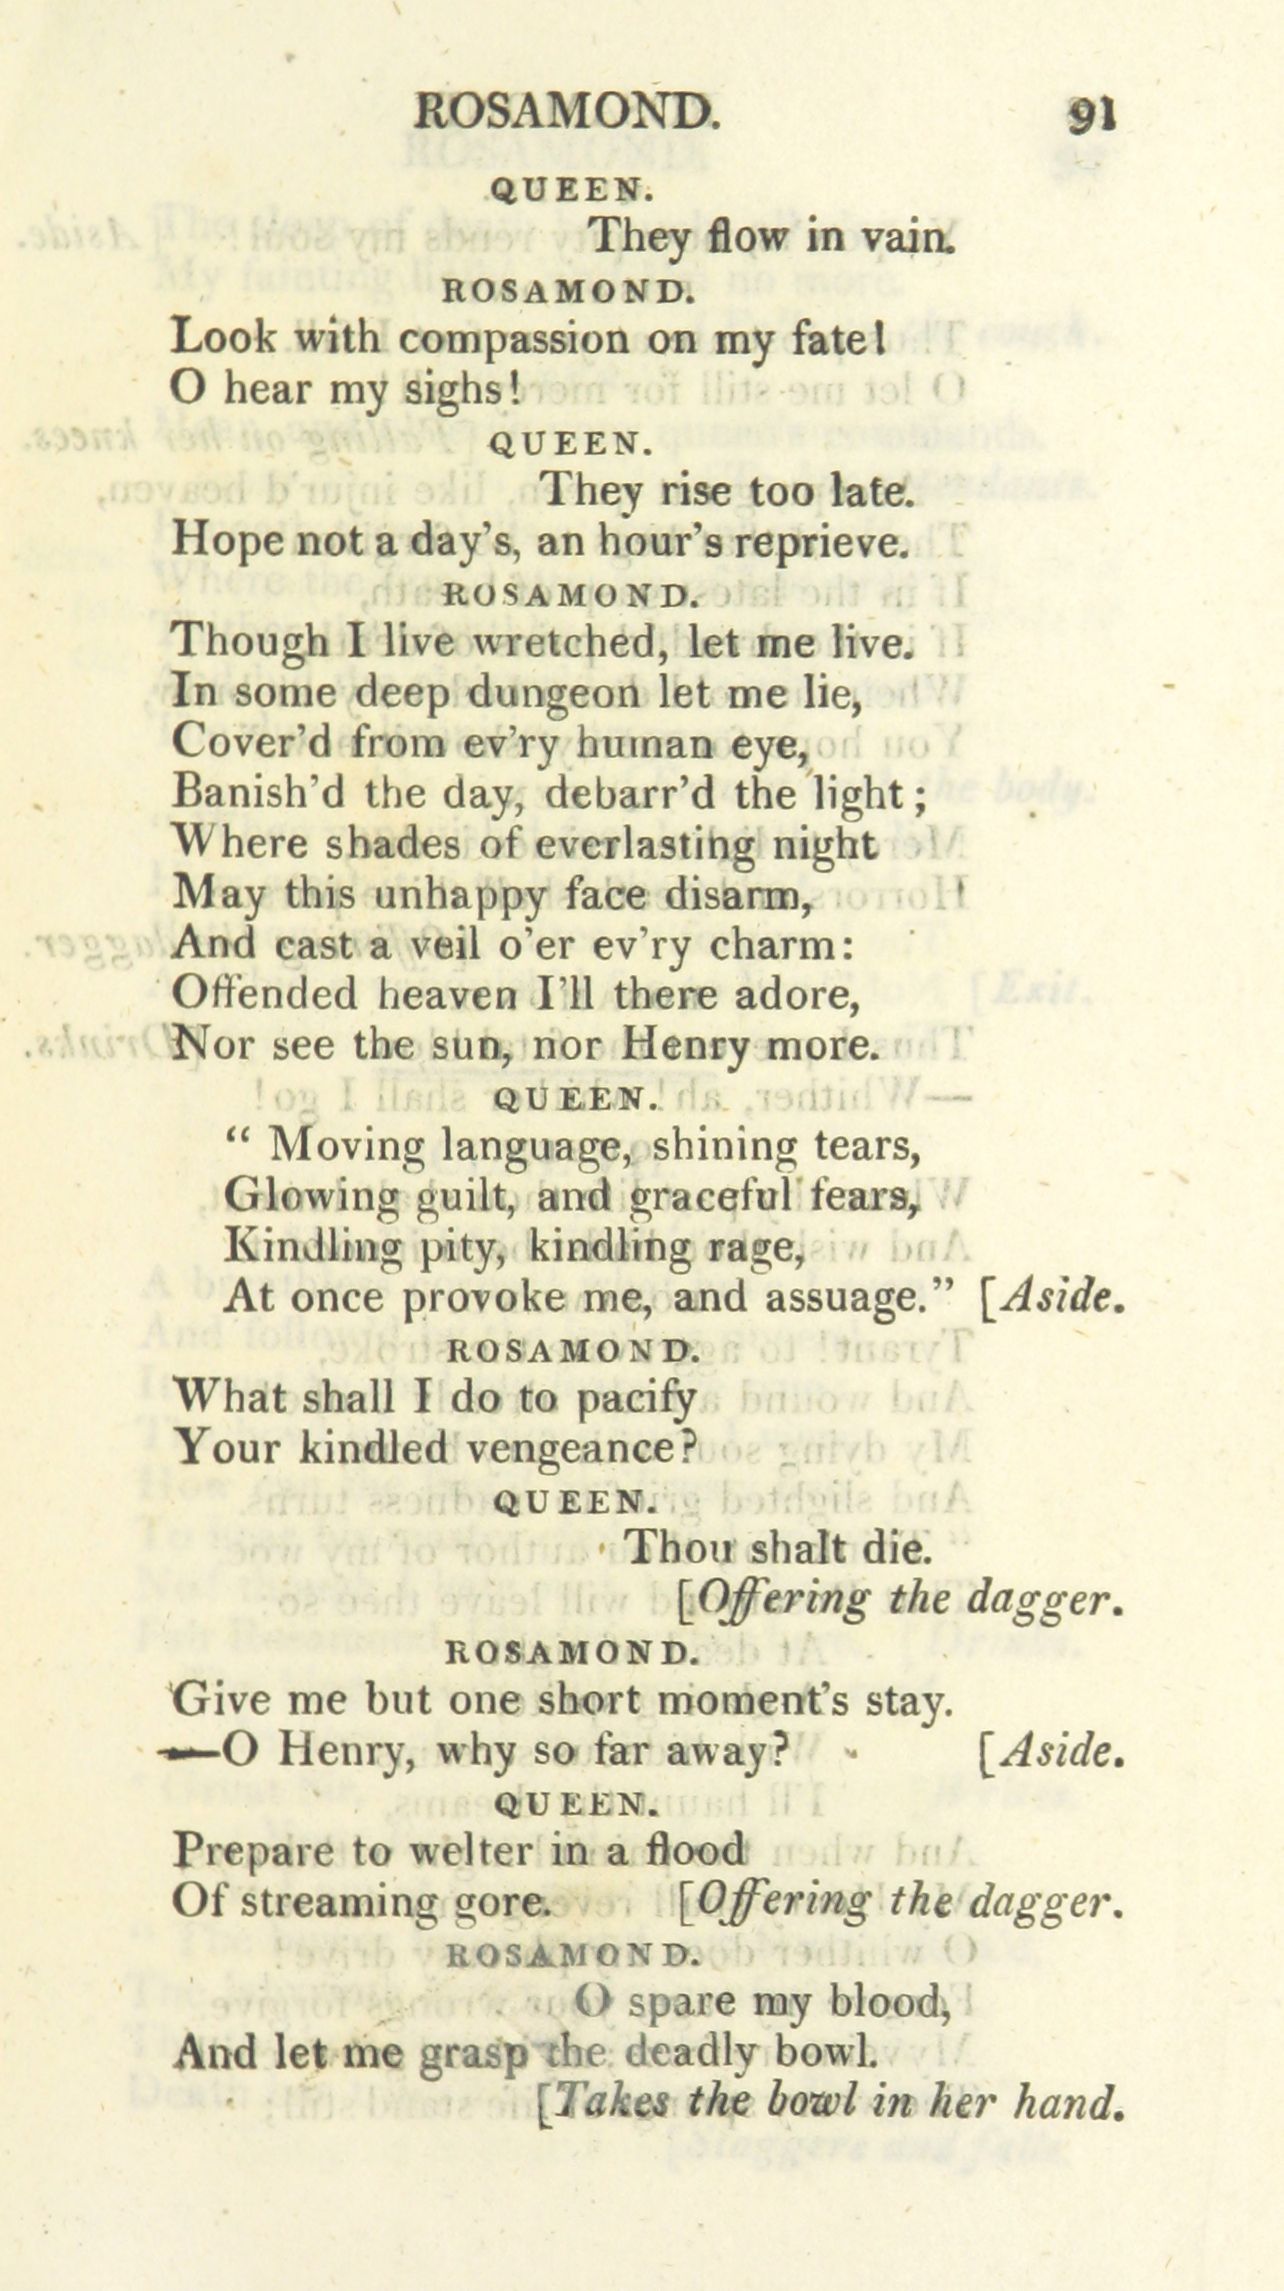 ROSAMOND. 91
QUEEN.
They flow in vain.
ROSAMOND.
Look with compassion on my fate!
O hear my sighs!
QUEEN.
They rise too late.
Hope not a day's, an hour's reprieve.
ROSAMOND.
Though I live wretched, let me live.
In some deep dungeon let me lie,
Cover'd from ev'ry human eye,
Banish'd the day, debarr'd the light;
Where shades of everlasting night
May this unhappy face disarm,
And cast a veil o'er ev'ry charm:
Offended heaven I'll there adore,
Nor see the sun, nor Henry more.
QUEEN.
“ Moving language, shining tears,
Glowing guilt, and graceful fears,
Kindling pity, kindling rage,
At once provoke me, and assuage.” [Aside.
ROSAMOND.
What shall I do to pacify
Your kindled vengeance?
QUEEN.
Thou shalt die.
[Offering the dagger.
ROSAMOND.
Give me but one short moment's stay.
—O Henry, why so far away? [Aside.
QUEEN.
Prepare to welter in a flood
Of streaming gore. [Offering the dagger.
ROSAMOND.
O spare my blood,
And let me grasp the deadly bowl.
[Takes the bowl in her hand.